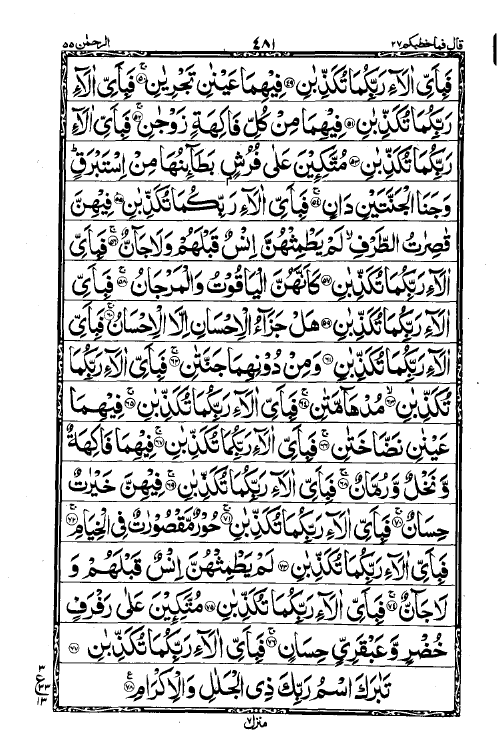 قال فما خطبكم ٢٧ ٤٨١ الرحمٰن ٥٥
فَبِاَیِّ اٰلَآءِ رَبِّكُمَا تُكَذِّبٰنِ ﴿۴۹﴾ فِیْهِمَا عَیْنٰنِ تَجْرِیٰنِ ﴿۵۰﴾ۚ فَبِاَیِّ اٰلَآءِ
رَبِّكُمَا تُكَذِّبٰنِ ﴿۵۱﴾ فِیْهِمَا مِنْ كُلِّ فَاكِهَةٍ زَوْجٰنِ ﴿۵۲﴾ۚ فَبِاَیِّ اٰلَآءِ
رَبِّكُمَا تُكَذِّبٰنِ ﴿۵۳﴾ مُتَّكِـِٕیْنَ عَلٰی فُرُشٍۭ بَطَآىِٕنُهَا مِنْ اِسْتَبْرَقٍ ؕ
وَجَنَا الْجَنَّتَیْنِ دَانٍ ﴿۵۴﴾ۚ فَبِاَیِّ اٰلَآءِ رَبِّكُمَا تُكَذِّبٰنِ ﴿۵۵﴾ فِیْهِنَّ
قٰصِرٰتُ الطَّرْفِ ۙ لَمْ یَطْمِثْهُنَّ اِنْسٌ قَبْلَهُمْ وَلَا جَآنٌّ ﴿۵۶﴾ۚ فَبِاَیِّ
اٰلَآءِ رَبِّكُمَا تُكَذِّبٰنِ ﴿۵۷﴾ۚ كَاَنَّهُنَّ الْیَاقُوْتُ وَالْمَرْجَانُ ﴿۵۸﴾ۚ فَبِاَیِّ
اٰلَآءِ رَبِّكُمَا تُكَذِّبٰنِ ﴿۵۹﴾ هَلْ جَزَآءُ الْاِحْسَانِ اِلَّا الْاِحْسَانُ ﴿۶۰﴾ۚ فَبِاَیِّ
اٰلَآءِ رَبِّكُمَا تُكَذِّبٰنِ ﴿۶۱﴾ وَمِنْ دُوْنِهِمَا جَنَّتٰنِ ﴿۶۲﴾ۚ فَبِاَیِّ اٰلَآءِ رَبِّكُمَا
تُكَذِّبٰنِ ﴿۶۳﴾ۙ مُدْهَآمَّتٰنِ ﴿۶۴﴾ۚ فَبِاَیِّ اٰلَآءِ رَبِّكُمَا تُكَذِّبٰنِ ﴿۶۵﴾ۚ فِیْهِمَا
عَیْنٰنِ نَضَّاخَتٰنِ ﴿۶۶﴾ۚ فَبِاَیِّ اٰلَآءِ رَبِّكُمَا تُكَذِّبٰنِ ﴿۶۷﴾ۚ فِیْهِمَا فَاكِهَةٌ
وَّ نَخْلٌ وَّ رُمَّانٌ ﴿۶۸﴾ۚ فَبِاَیِّ اٰلَآءِ رَبِّكُمَا تُكَذِّبٰنِ ﴿۶۹﴾ۚ فِیْهِنَّ خَیْرٰتٌ
حِسَانٌ ﴿۷۰﴾ۚ فَبِاَیِّ اٰلَآءِ رَبِّكُمَا تُكَذِّبٰنِ ﴿۷۱﴾ۚ حُوْرٌ مَّقْصُوْرٰتٌ فِی الْخِیَامِ ﴿۷۲﴾ۚ
فَبِاَیِّ اٰلَآءِ رَبِّكُمَا تُكَذِّبٰنِ ﴿۷۳﴾ۚ لَمْ یَطْمِثْهُنَّ اِنْسٌ قَبْلَهُمْ وَ
لَا جَآنٌّ ﴿۷۴﴾ۚ فَبِاَیِّ اٰلَآءِ رَبِّكُمَا تُكَذِّبٰنِ ﴿۷۵﴾ۚ مُتَّكِـِٕیْنَ عَلٰی رَفْرَفٍ
خُضْرٍ وَّ عَبْقَرِیٍّ حِسَانٍ ﴿۷۶﴾ۚ فَبِاَیِّ اٰلَآءِ رَبِّكُمَا تُكَذِّبٰنِ ﴿۷۷﴾
تَبٰرَكَ اسْمُ رَبِّكَ ذِی الْجَلٰلِ وَالْاِكْرَامِ ﴿۷۸﴾
٣ ع ٣٣ ١٣
منزل ٧